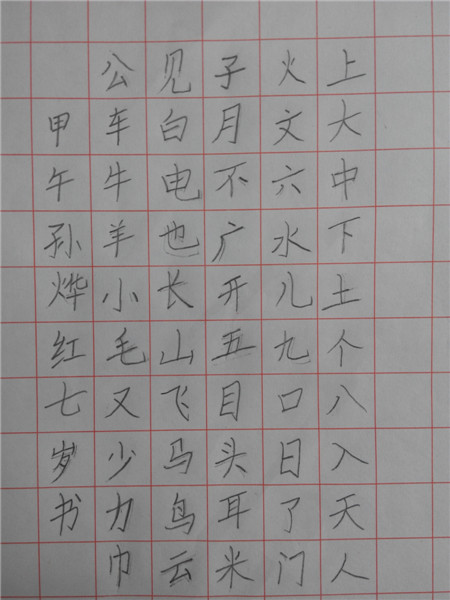 上大中下土个八入天人
火文六水儿九口日了门
子月不广开五目头耳米
见白电也长山飞马鸟云
公车牛羊小毛又少力巾
甲午孙烨红七岁书